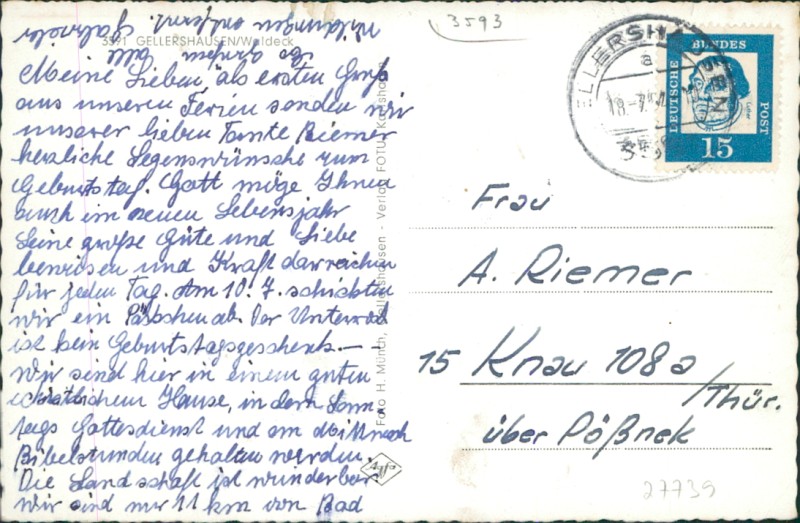 3591 GELLERSHAUSEN/Waldeck
Meine Lieben, als ersten Gruß
aus unseren Ferien senden wir
unserer lieben Tante Riemer
herzliche Segenswünsche zum
Geburtstag. Gott möge Ihnen
auch im neuen Lebensjahr
Seine große Güte und Liebe
beweisen und Kraft darreichen
für jeden Tag. Am 10.7. schickten
wir ein Päckchen ab. Der Unterrock
ist kein Geburtstagsgeschenk. —
Wir sind hier in einem guten
christlichem Hause, in dem Sonn-
tags Gottesdienst und am Mittwoch
Bibelstunden gehalten werden.
Die Landschaft ist wunderbar
Wir sind nur 11 km von Bad
Wildungen entfernt.
Es grüßen alle
Foto H. Münch, Gellershausen - Verlag FOTU
Agfa
3593
ELLERSHAUSEN
a
DEUTSCHE BUNDESPOST
Luther
15
Frau
A. Riemer
15 Knau 108a
/Thür.
über Pößnek
27739